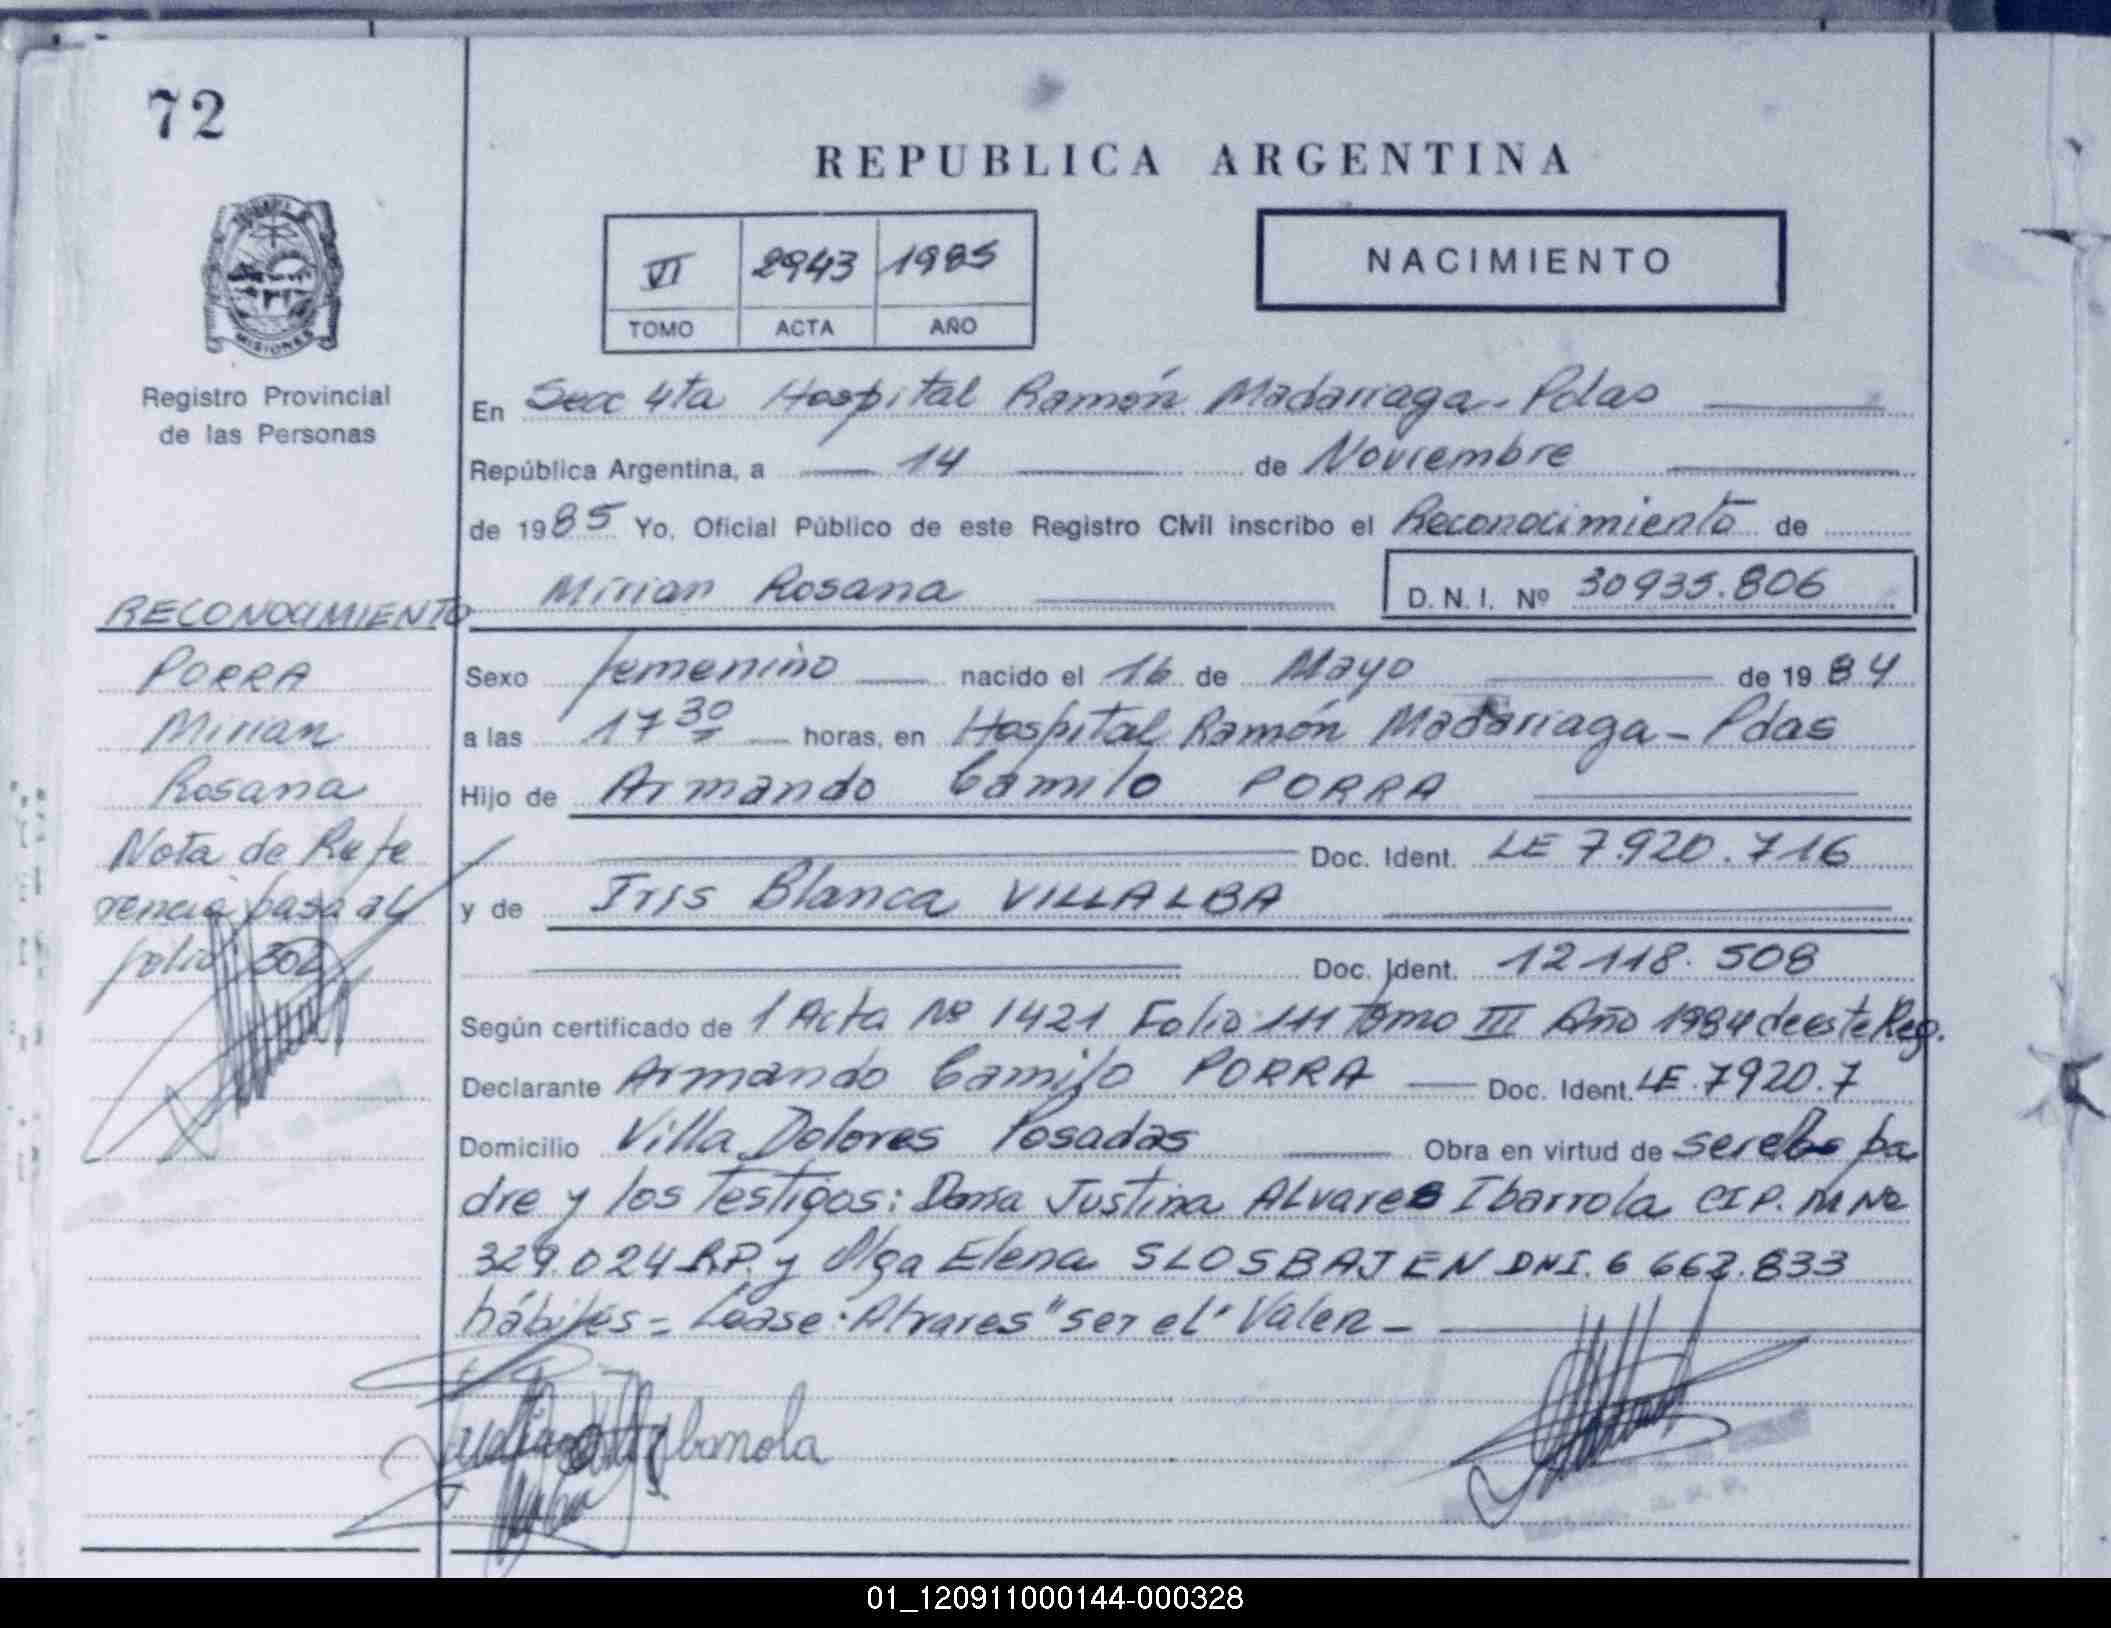 72
REPUBLICA ARGENTINA
VI 2943 1985
TOMO ACTA AÑO
NACIMIENTO
MISIONES
Registro Provincial
de las Personas
En Secc 4ta Hospital Ramón Madarriaga - Pdas
República Argentina, a 14 de Noviembre
de 1985 Yo, Oficial Público de este Registro Civil inscribo el Reconocimiento de
Mirian Rosana D.N.I. Nº 30935.806
RECONOCIMIENTO
PORRA
Mirian
Rosana
Nota de Refe
rencia pasa al
folio 302
Sexo femenino nacido el 16 de Mayo de 1984
a las 17 30 horas, en Hospital Ramón Madarriaga - Pdas
Hijo de Armando Camilo PORRA
Doc. Ident. LE 7.920.716
y de Iris Blanca VILLALBA
Doc. Ident. 12 118.508
Según certificado de 1 Acta Nº 1421 Folio 111 Tomo III Año 1984 de este Reg.
Declarante Armando Camilo PORRA Doc. Ident. LE.7920.7
Domicilio Villa Dolores Posadas Obra en virtud de ser el pa
dre y los Testigos: Justina Alvares Ibarrola CIP. M Nº
329.024 R.P. y Olga Elena SLOSBAJEN DNI. 6 662.833
hábiles = Léase: Alvares "ser el" Valen -
01_120911000144-000328